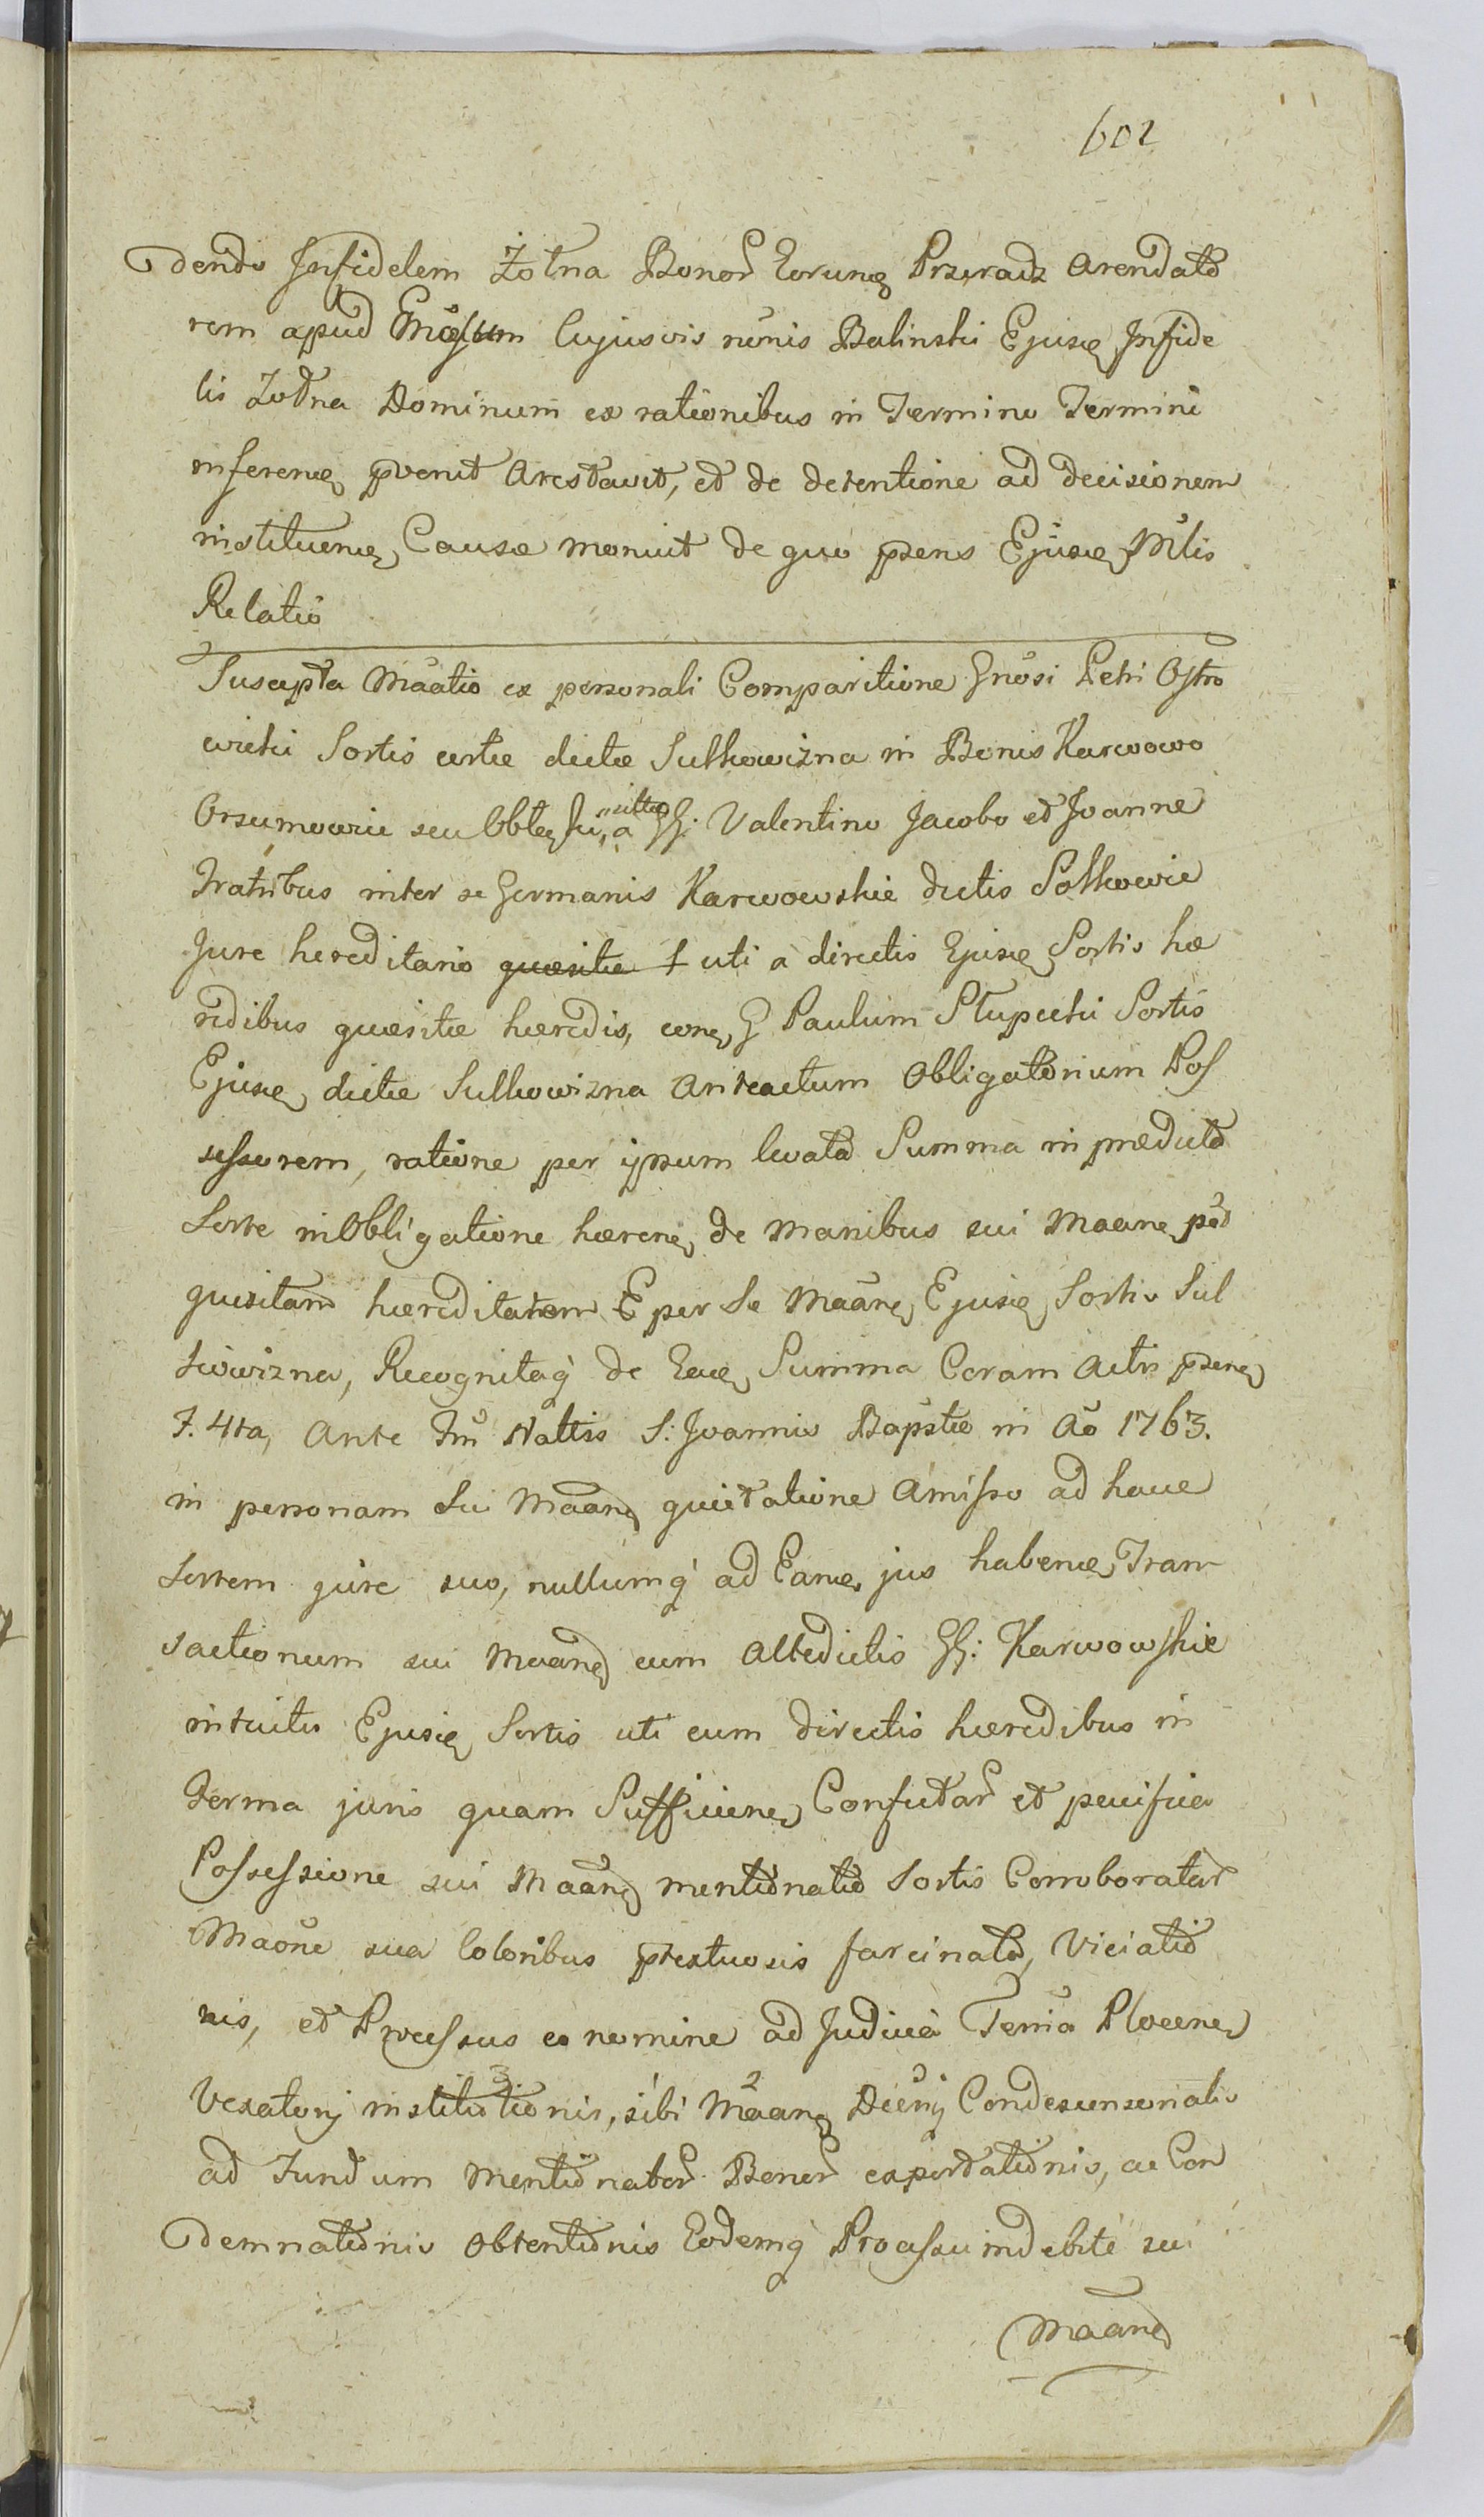 602
dendo Infidelem Żołna Bonor Eorunq Przeradz Arendato
rem apud Gnosum Cujusvis nonis Balinski Ejusq Infide
lis Żołna Dominum ex rationibus in Termino Termini
inferenq pvenit Arestavit, et de detentione ad decisionem
instituenq Causæ monuit de quo psens Ejusq Mlis
Relatio
Suscepta Maatio ex personali Comparitione Gnosi Petri Ostro
wicki Sortis certæ dictæ Sulkowizna in Bonis Karwowo
Orszymowice seu sitæ a GG: Valentino Jacobo et Joanne
Fratribus inter se Germanis Karwowskie dictis Solkowie
Jure hereditario quæsitæ uti a directis Ejusq Sortis hæ
redibus quæsitæ hæredis, conq G Paulum Słupecki Sortis
Ejusq dictæ Sulkowizna Anteactum Obligatorium Pos
sessorem, ratione per ipsum levata Summa in prædicta
Sorte in Obligatione hærenq de manibus sui Maanq
quisitam hæreditatem E per Se Maanq Ejusq Sortis Sul
kowizna, Recognitaq de Eaq Summa Coram Actis psenq
F. 4ta, Ante Fm Nattis S: Joannis Bapstæ in Ao 1763.
in personam Sui Maanq quietatione Amisso ad hanc
Sortem jure suo, nullumq ad Eamq jus habenq Tran
sactionum sui Maanq cum Altedictis GG: Karwowskie
intuitu Ejusq Sortis uti cum directis hæredibus in
Forma juris quam Sufficienq Confectar et pacifica
Possessione sui Maanq mentionatæ Sortis Corroboratar
Maone sua Coloribus ptextuosis farcinata, Viciatio
nis, et Processus eo nomine ad Judicia Terria Plocenq
Vexatorij institutionis, sibi Maanq Diei Condescensorialis
ad Fundum Mentionator Bonor exportationis, ac Con
demnationis Obtentionis Eodemq Processu indebite sui
Maanq